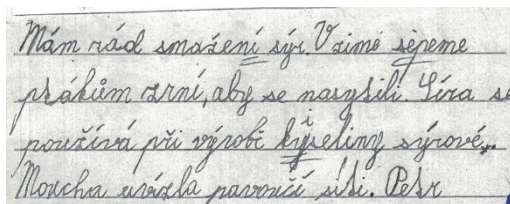 Mám rád smažení sýr. V zimě sépeme
ptákům zrní, aby se nasytili. Síra se
používá při výrobě kyseliny sýrové.
i
Moucha uvázla pavoučí síti. Petr